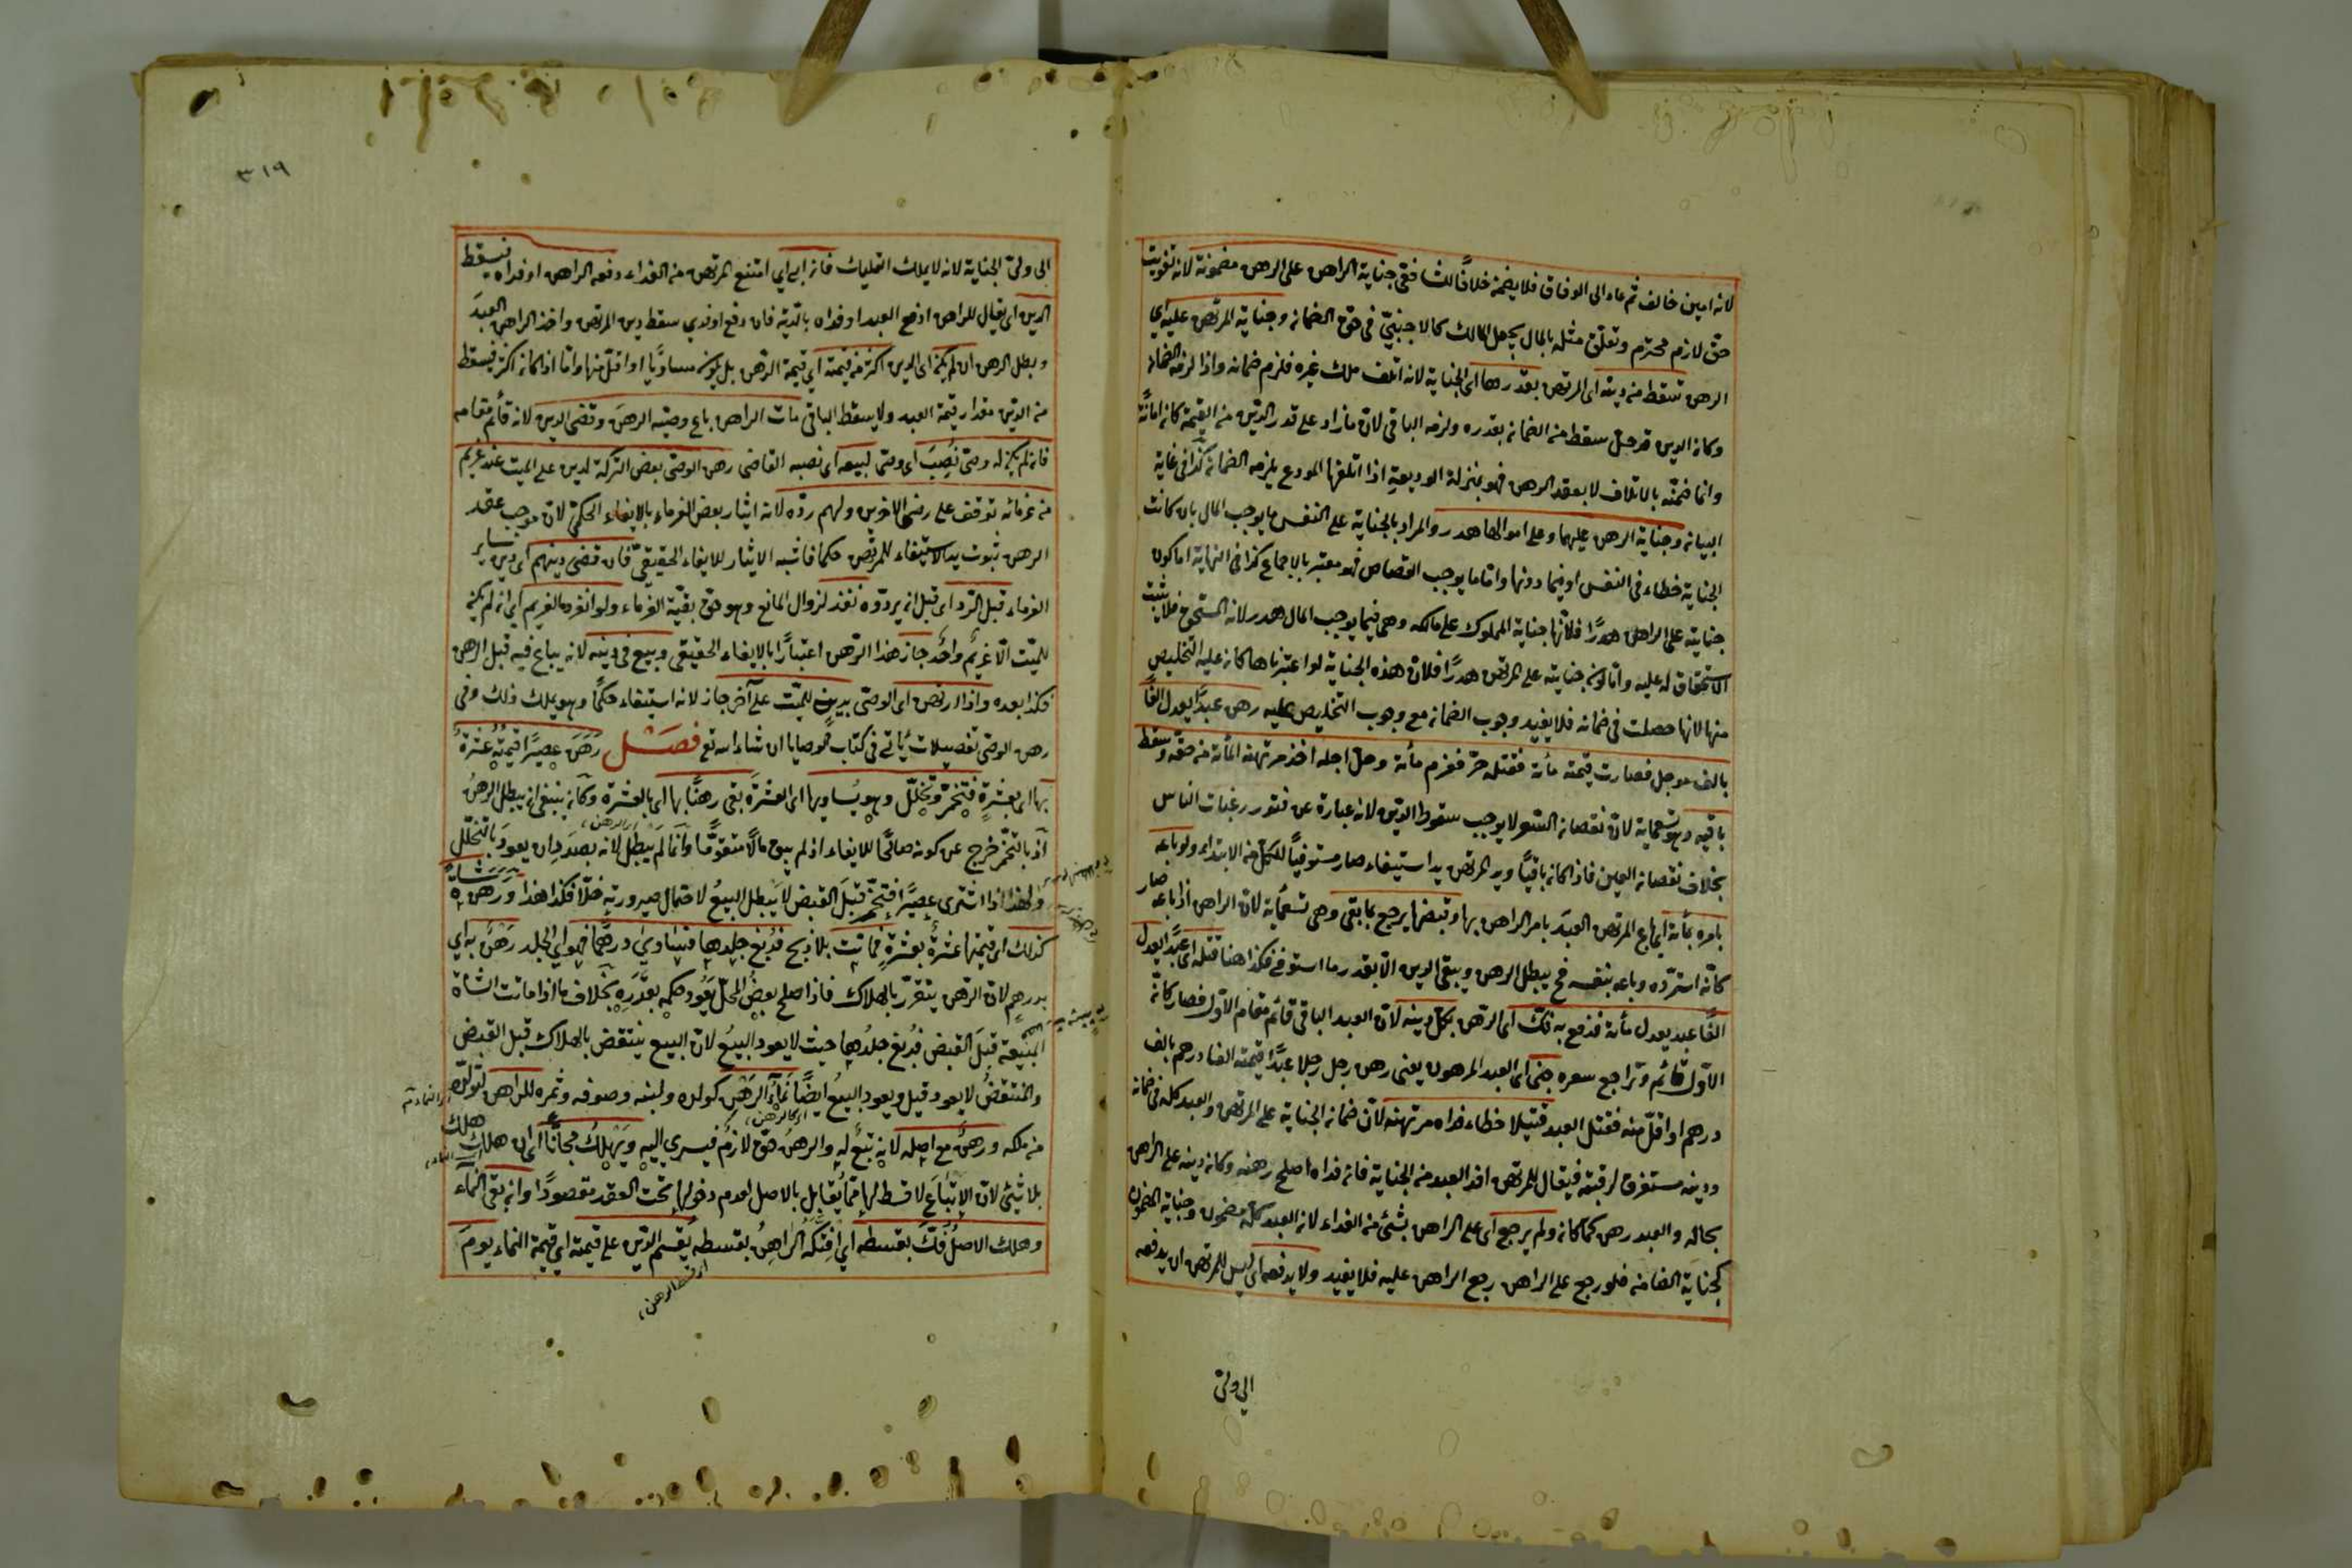 لانه امين خالف ثم عاد الى الوفاق فلا يضمنه خلافًا لنا ففى جناية الراهن على الرهن مضمونة لانه تفويت
حق لازم محترم وتعلق مثله بالمال يجعل المالك كالاجنبىّ فى حق الضمان وجناية المرتهن عليه اي
الرهن تسقط من دينه اى المرتهن بقدرها اى الجناية لانه اتلف ملك غيره فلزم ضمانه واذا لزمه الضمان
وكان الدين قد حل سقط من الضمان بقدره ولزمه الباقى لان ما زاد على قدر الدين من القيمة كان امانةً
وانما ضمنه بالاتلاف لا بعقد الرهن فهو بمنزلة الوديعة اذا اتلفها المودع يلزمه الضمان كذا فى غاية
البيان وجناية الرهن عليهما وعلى اموالهما هدر والمراد بالجناية على النفس ما يوجب المال بان كانت
الجناية خطاء فى النفس او فيما دونها واما ما يوجب القصاص فهو معتبر بالاجماع كذا فى النهاية اما كون
جنايته على الراهن هدرًا فلانها جناية المملوك على مالكه وهى فيما يوجب المال هدر لانه المستحق فلا يثبت
الاستحقاق له عليه واما كون جنايته على المرتهن هدرًا فلان هذه الجناية لو اعتبرناها كان عليه التخليص
منها لانها حصلت فى ضمانه فلا يفيد وجوب الضمان مع وجوب التخليص عليه رهن عبدًا يعدل الفًا
بالف موجل فصارت قيمته مأة فقتله حرّ فغرم مأة وحل اجله اخذ مرتهنه المأة من حقه وسقط
باقيه وهو تسعمأية لان نقصان السعر لا يوجب سقوط الدين لانه عبارة عن فتور رغبات الناس
بخلاف نقصان العين فاذا كان باقيًا ويد المرتهن يد استيفاء صار مستوفيًا للكل من الابتداء ولو باعه
بامره بمأة اى باع المرتهن العبدَ بامر الراهن بها وقبضها يرجع بما بقى وهى تسعمأية لان الراهن اذا باعه صار
كانّه استردّه وباعه بنفسه فح يبطل الرهن ويبقى الدين الا بقدر ما استوفى فكذا هنا قتله اى عبدًا يعدل
الفًا عبد يعدل مأة فدفع به فكّ اى الرهن بكل دينه لان العبد الباقى قائم مقام الاوّل فصار كانّ
الاوّل قائم وتراجع سعره جنى اى العبد المرهون يعنى رهن رجل رجلا عبدًا قيمته الفا درهم بالف
درهم او اقلّ منه فقتل العبد قتيلا خطاء فداه مرتهنه لان ضمان الجناية على المرتهن والعبد كله فى ضمانه
ودينه مستغرق لرقبته فيقال للمرتهن افد العبد من الجناية فان فداه اصلح رهنه وكان دينه على الراهن
بحاله والعبد رهن كما كان ولم يرجع اى على الراهن بشئ من الفداء لانه العبد كله مضمون وجناية المضمون
كجناية الضامن فلو رجع على الراهن رجع الراهن عليه فلا يفيد ولا يدفعه اى ليس للمرتهن ان يدفعه
الى ولىّ
٣١٩
الى ولىّ الجناية لانه لا يملك التمليك فان ابى اي امتنع المرتهن من الفداء دفعه الراهن او فداه فيسقط
الدين اى يقال للراهن ادفع العبد او فداه بالدية فان دفع او فدي سقط دين المرتهن واخذ الراهن العبدَ
وبطل الرهن ان لم يكن اى الدين اكثر من قيمته اي قيمة الرهن بل يكون مساويًا او اقلّ منها واما اذا كان اكثر فيسقط
من الدين مقدار قيمة العبد ولا يسقط الباقى مات الراهن باع وصيه الرهنَ وقضى الدين لانه قائم مقامه
فان لم يكن له وصى نُصِبَ اى وصى لبيعه اى نصبه القاضى رهن الوصى بعض التركة لدين على الميت عند غريم
من غرمائه توقف على رضى الاخرين ولهم ردّه لانه ايثار بعض الغرماء بالايفاء الحكمىّ لان موجب عقد
الرهن ثبوت يد الاستيفاء للمرتهن حكما فاشبه الايثار للايفاء الحقيقىّ فان قضى دينهم اى دين ساير
الغرماء قبل الرد اى قبل ان يردّوه نفذ لزوال المانع وهو حق بقيّة الغرماء ولو انفرد الغريم اى ان لم يكن
للميّت الا غريم واحد جاز هذا الرهن اعتبارًا بالايفاء الحقيقى وبيع فى دينه لانه يباع فيه قبل الرهن
فكذا بعده واذا ارتهن اى الوصى بدين للميّت على آخر جاز لانه استيفاء حكمًا وهو يملك ذلك وفى
رهن الوصى تفصيلات يأتى فى كتاب الوصايا ان شاء الله تع فصل رَهَنَ عصيرًا قيمتُه عشرةٌ
بها اى بعشرةٍ فتخمّر وتخلّل وهو يُساويها اى العشرَةَ بقى رهنًا بها اى بالعشرة وكان ينبغى ان يبطل الرهنُ
اذ بالتخمّر خرج عن كونه صالحًا للايفاء اذ لم يبق مالًا متقوّمًا وانما لم يَبْطُل لانه بصدد ان يعودَ بالتخلّل
ولهذا اذا اشترى عصيرًا فتخمّر قبلَ القبض لا يَبطل البيعُ لاحتمال صيرورته خلّا فكذا هذا وَرَهَنَ شاةً
كذلك اى قيمتها عشرةٌ بعشرةٍ فماتت بلا ذبح فدُبغ جلدها فيساوى درهمًا فهو اى الجلد رَهْن به اي
بدرهم لان الرهن يتقرّر بالهلاك فاذا صلح بعضُ المحلّ يَعُود حكمُه بقَدَرِه بخلاف ما اذا ماتت الشاة
المبيعة قبلَ القبض فدُبغ جلدُها حيث لا يعود البيعُ لان البيع ينتقض بالهلاك قبل القبض
والمنتقضُ لا يعود قيل ويعود البيعُ ايضًا نَماءُ الرَهْنِ كولده ولبنه وصوفه وثمره للراهن لتولّده
من ملكه ورهنٌ مع اصله لانه تبعٌ له والرهنُ حق لازمٌ فيسرى اليه وَيَهْلِكُ مجانًا اى ان هلك هلك
بلا شئ لان الاتْبَاعَ لا قسط لها ممّا يُقابل بالاصل لعدم دخولها تحت العقد مقصودًا وان بقى النماء
وهلك الاصلُ فُكّ بقسطه اي افتكّه الراهِنُ بقسطه يُقسم الدين على قيمته اي قيمة النماء يومَ